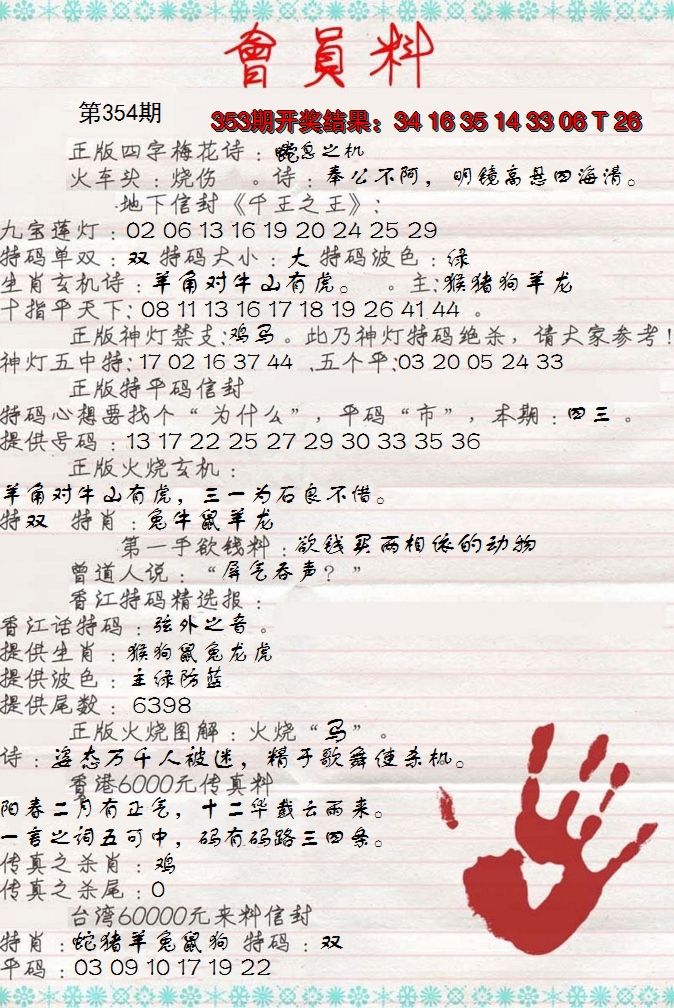 會員料
第354期
353期开奖结果：34 16 35 14 33 06 T 26
正版四字梅花诗：蛇息之机
火车头：烧伤 。诗：奉公不阿，明镜高悬四海清。
地下信封《千王之王》：
九宝莲灯：02 06 13 16 19 20 24 25 29
特码单双：双 特码大小：大 特码波色：绿
生肖玄机诗：羊角对牛山有虎。 。主:猴猪狗羊龙
十指平天下: 08 11 13 16 17 18 19 26 41 44 。
正版神灯禁支:鸡马。此乃神灯特码绝杀，请大家参考!
神灯五中特: 17 02 16 37 44 .五个平:03 20 05 24 33
正版特平码信封
特码心想要找个“为什么”，平码“市”，本期：四三 。
提供号码：13 17 22 25 27 29 30 33 35 36
正版火烧玄机：
羊角对牛山有虎，三一为石良不借。
特双 特肖：兔牛鼠羊龙
第一手欲钱料：欲钱买两相依的动物
曾道人说：“屏气吞声？”
香江特码精选报：
香江话特码：弦外之音 。
提供生肖：猴狗鼠兔龙虎
提供波色：主绿防蓝
提供尾数：6398
正版火烧图解：火烧“马”。
诗：姿态万千人被迷，精于歌舞使杀机。
香港6000元传真料
阳春二月有正气，十二华载云雨来。
一言之词五可中，码有码路三四条。
传真之杀肖：鸡
传真之杀尾：0
台湾60000元来料信封
特肖：蛇猪羊兔鼠狗 特码：双
平码：03 09 10 17 19 22